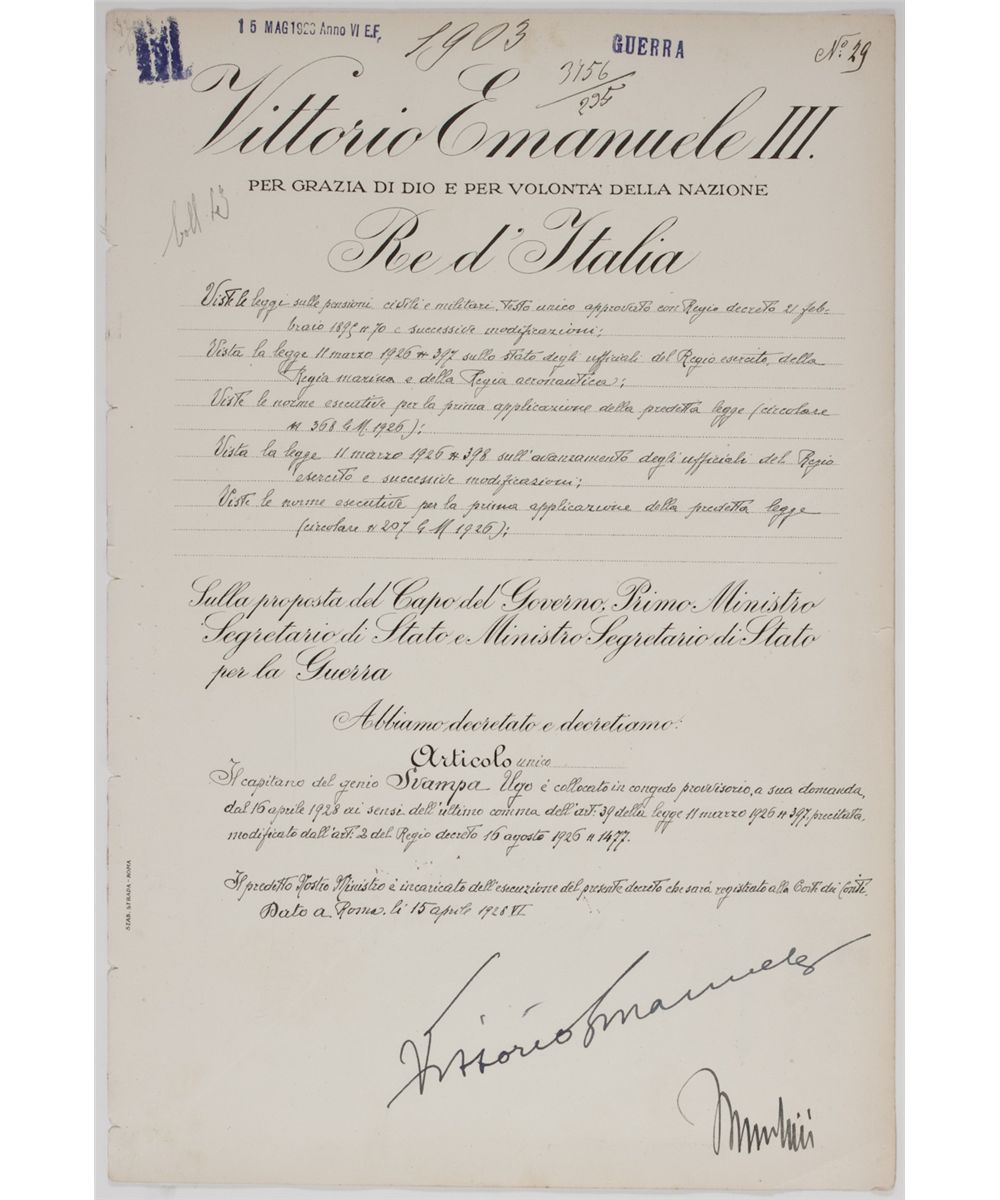 III
15 MAG 1928 Anno VI E.F.
1903
GUERRA
N.º 29
3756
295
Vittorio Emanuele III.
PER GRAZIA DI DIO E PER VOLONTA' DELLA NAZIONE
Re d'Italia
Viste le leggi sulle pensioni civili e militari, testo unico approvato con Regio decreto 21 feb-
braio 1895 n 70 e successive modificazioni;
Vista la legge 11 marzo 1926 n 397 sullo stato degli ufficiali del Regio esercito, della
Regia marina e della Regia aeronautica;
Viste le norme esecutive per la prima applicazione della predetta legge (circolare
n 368 G.M. 1926);
Vista la legge 11 marzo 1926 n 398 sull'avanzamento degli ufficiali del Regio
esercito e successive modificazioni;
Viste le norme esecutive per la prima applicazione della predetta legge
(circolare n 207 G M 1926);
Sulla proposta del Capo del Governo, Primo Ministro
Segretario di Stato e Ministro Segretario di Stato
per la Guerra
Abbiamo decretato e decretiamo:
Articolo unico
Il capitano del genio Svampa Ugo è collocato in congedo provvisorio, a sua domanda,
dal 16 aprile 1928 ai sensi dell'ultimo comma dell'art. 39 della legge 11 marzo 1926 n 397, precitata,
modificato dall'art. 2 del Regio decreto 16 agosto 1926 n 1477.
Il predetto Nostro Ministro è incaricato dell'esecuzione del presente decreto che sarà registrato alla Corte dei Conti.
Dato a Roma, li 15 aprile 1928 VI
STAB. STRADA - ROMA
Vittorio Emanuele
Mussolini